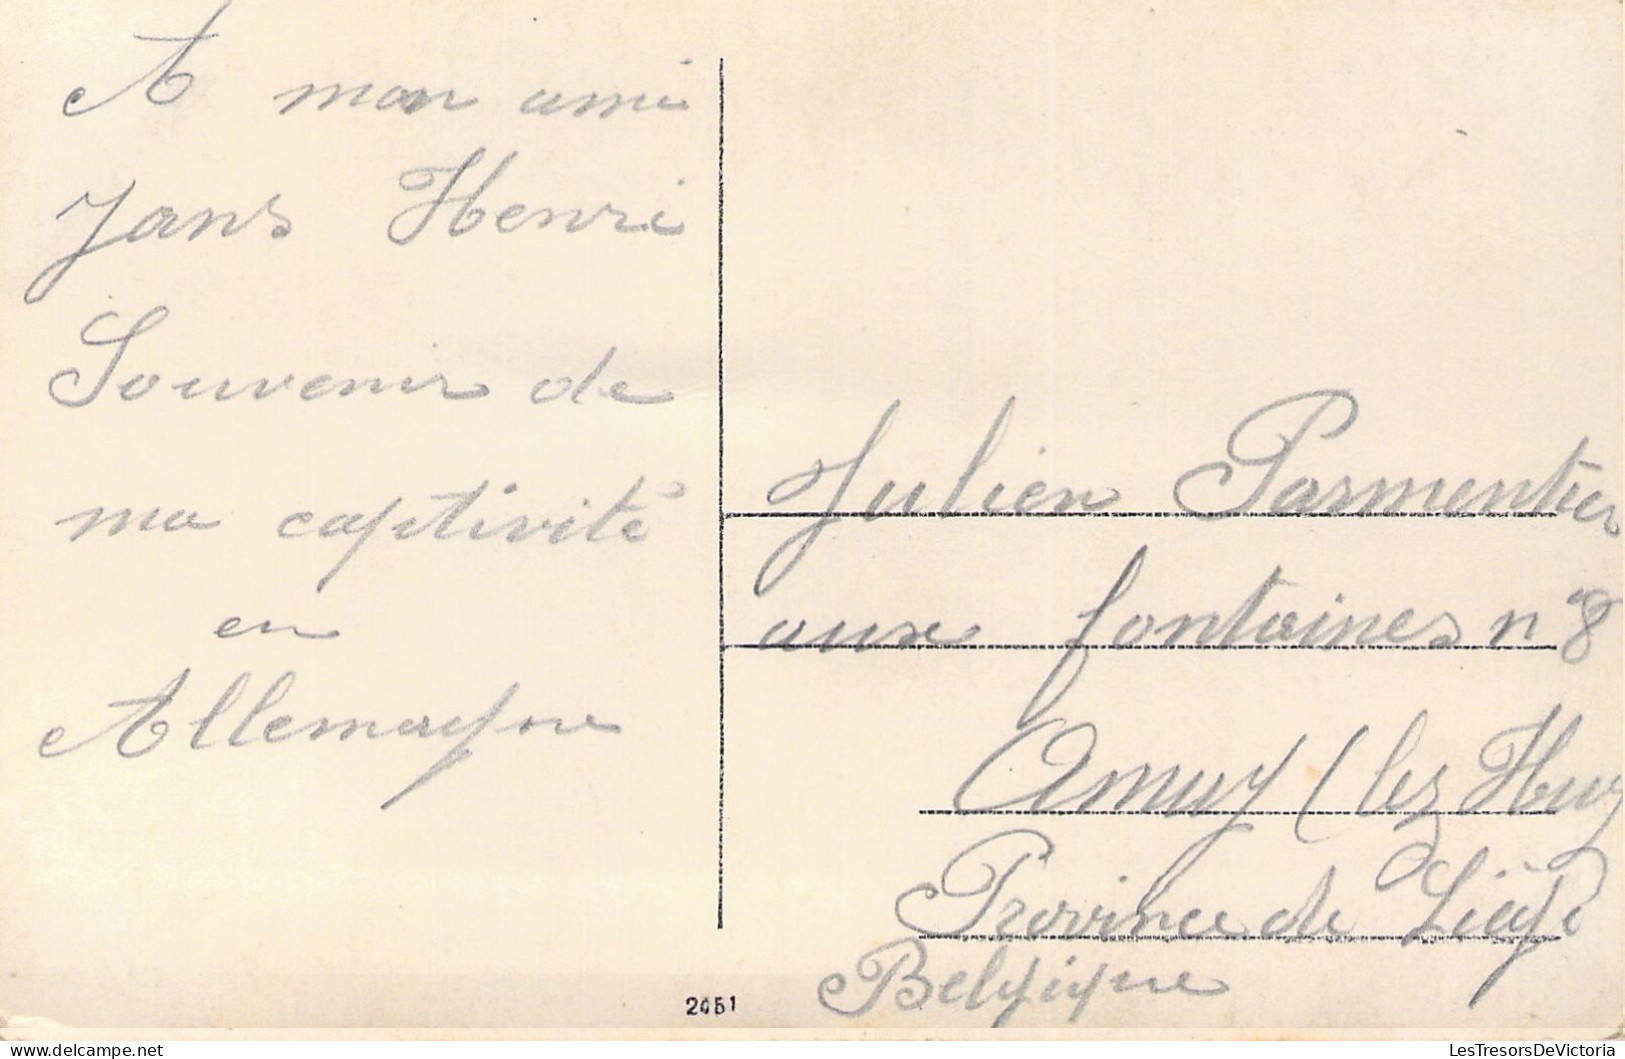 A mon ami
Jans Henri
Souvenir de
ma captivité
en
Allemagne
Julien Parmentier
aux fontaines n° 8
Amuy (lez Huy
Province de Liége
Belgique
2451
delcampe.net
LesTresorsDeVictoria